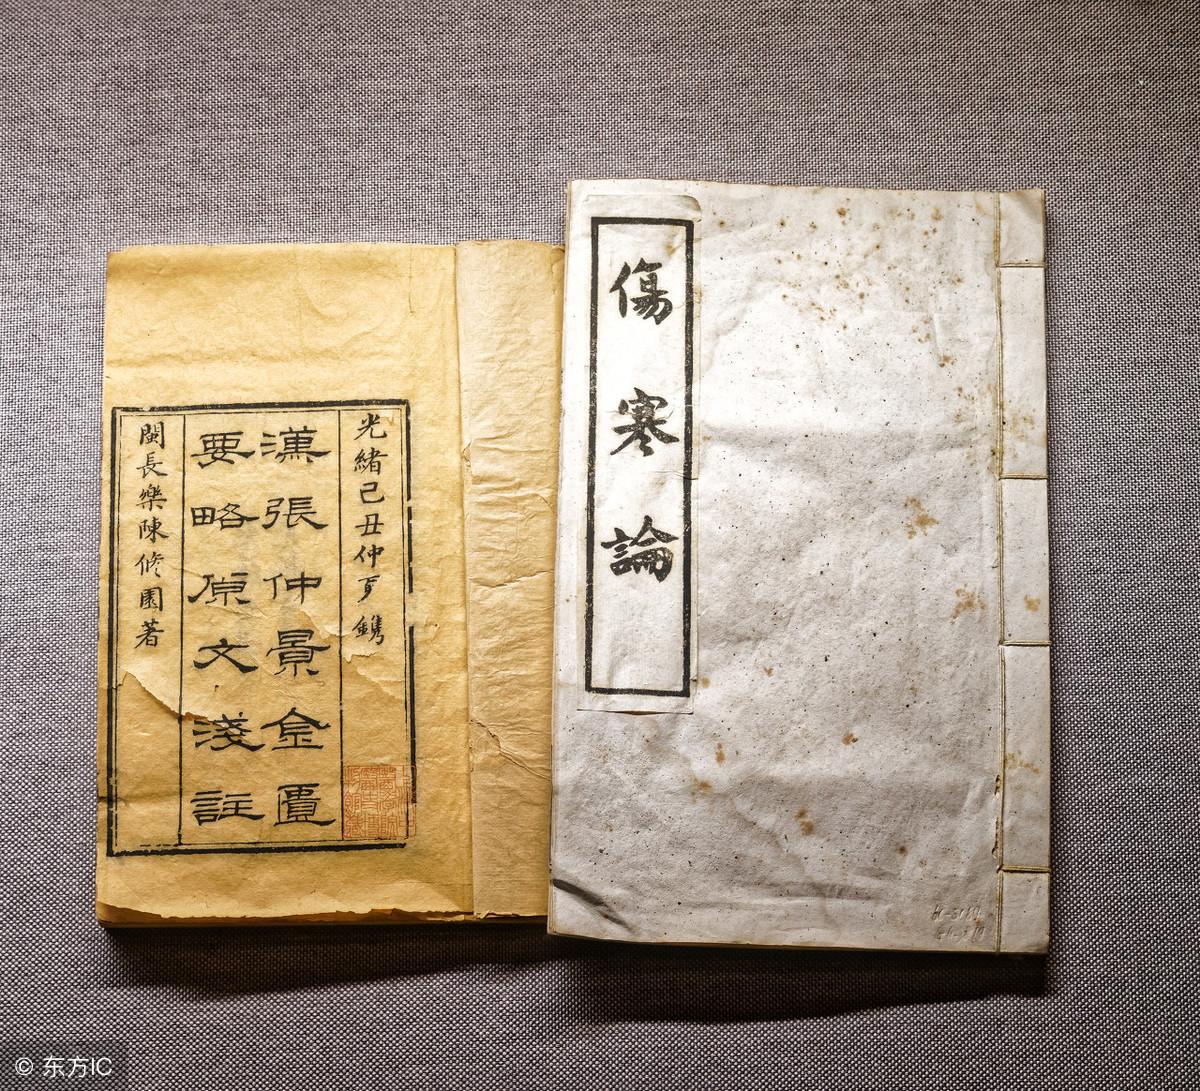 傷寒論
光緒己丑仲夏鐫
漢張仲景金匱
要略原文淺註
閩長樂陳修園著
© 东方IC